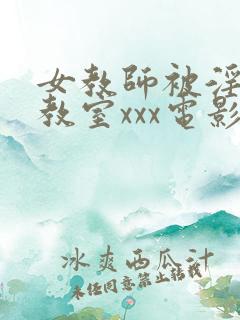 女教師被淫
教室xxx電影
冰爽西瓜汁
未经同意禁止转载